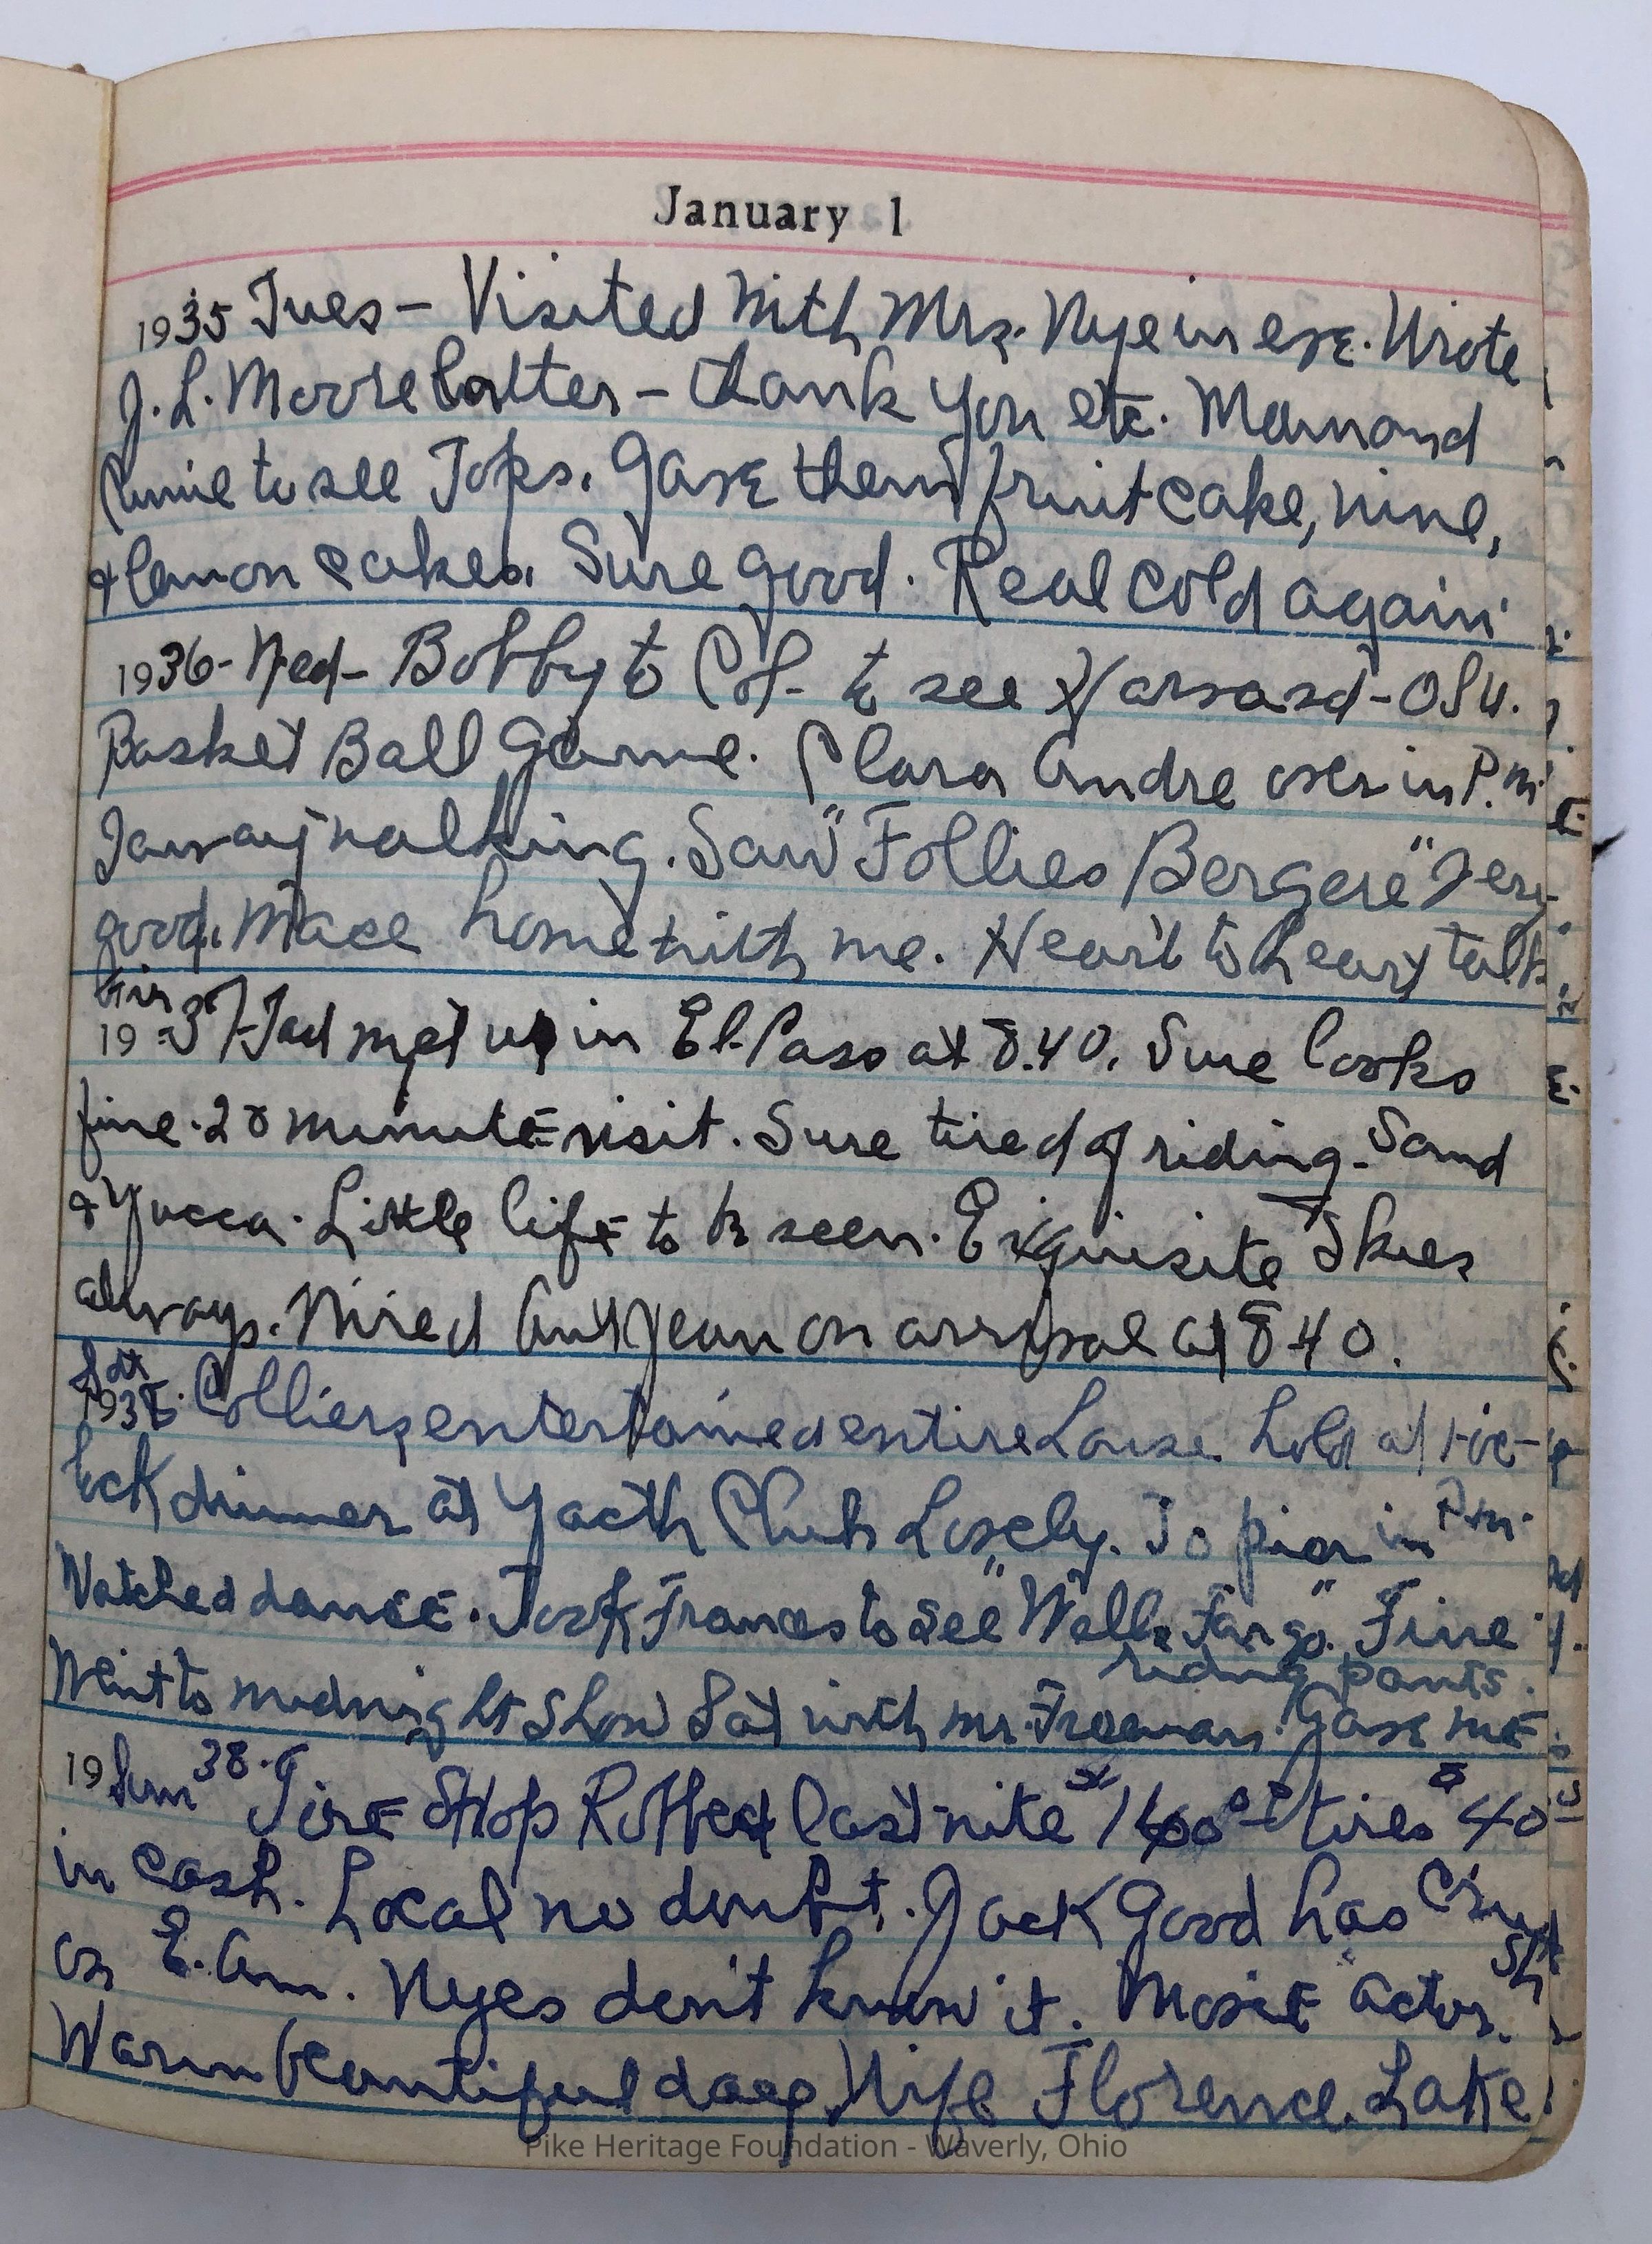 January 1
1935 Tues – Visited with Mrs. Nye in eve. Wrote
J. L. Moore letter – thank you etc. Mamond
came to see Tops. Gave them fruit cake, wine,
& lemon cakes. Sure good. Real cold again
1936 - Wed – Bobby to Col. to see Harvard – OSU.
Basket Ball Game. Clara Andre over in P.M.
walking. Saw "Follies Bergere" Very
good. Mace home with me. Heart to heart talk
1937 - Tad met us in El Paso at 8.40. Sure looks
fine. 20 minute visit. Sure tired of riding. Sand
& Yucca. Little life to be seen. Exquisite Skies
always. Wired Aunt Jean on arrival at 8 40.
Sat
1938. Colliers entertained entire house
dinner at Yacth Club Lovely. To pier in P.M.
Watched dance. Took Frances to see "Wells Fargo." Fine
riding pants.
Went to midnight Show Sat with Mr. Freeman. Gave me
19 Sun 38. Tire Shop Robbed last nite tires 40
in cash. Local no doubt. Jack Good has Crush
on E. Am. Nyes don't know it. Movie actor.
Warm beautiful day. Wife Florence Lake
Pike Heritage Foundation - Waverly, Ohio